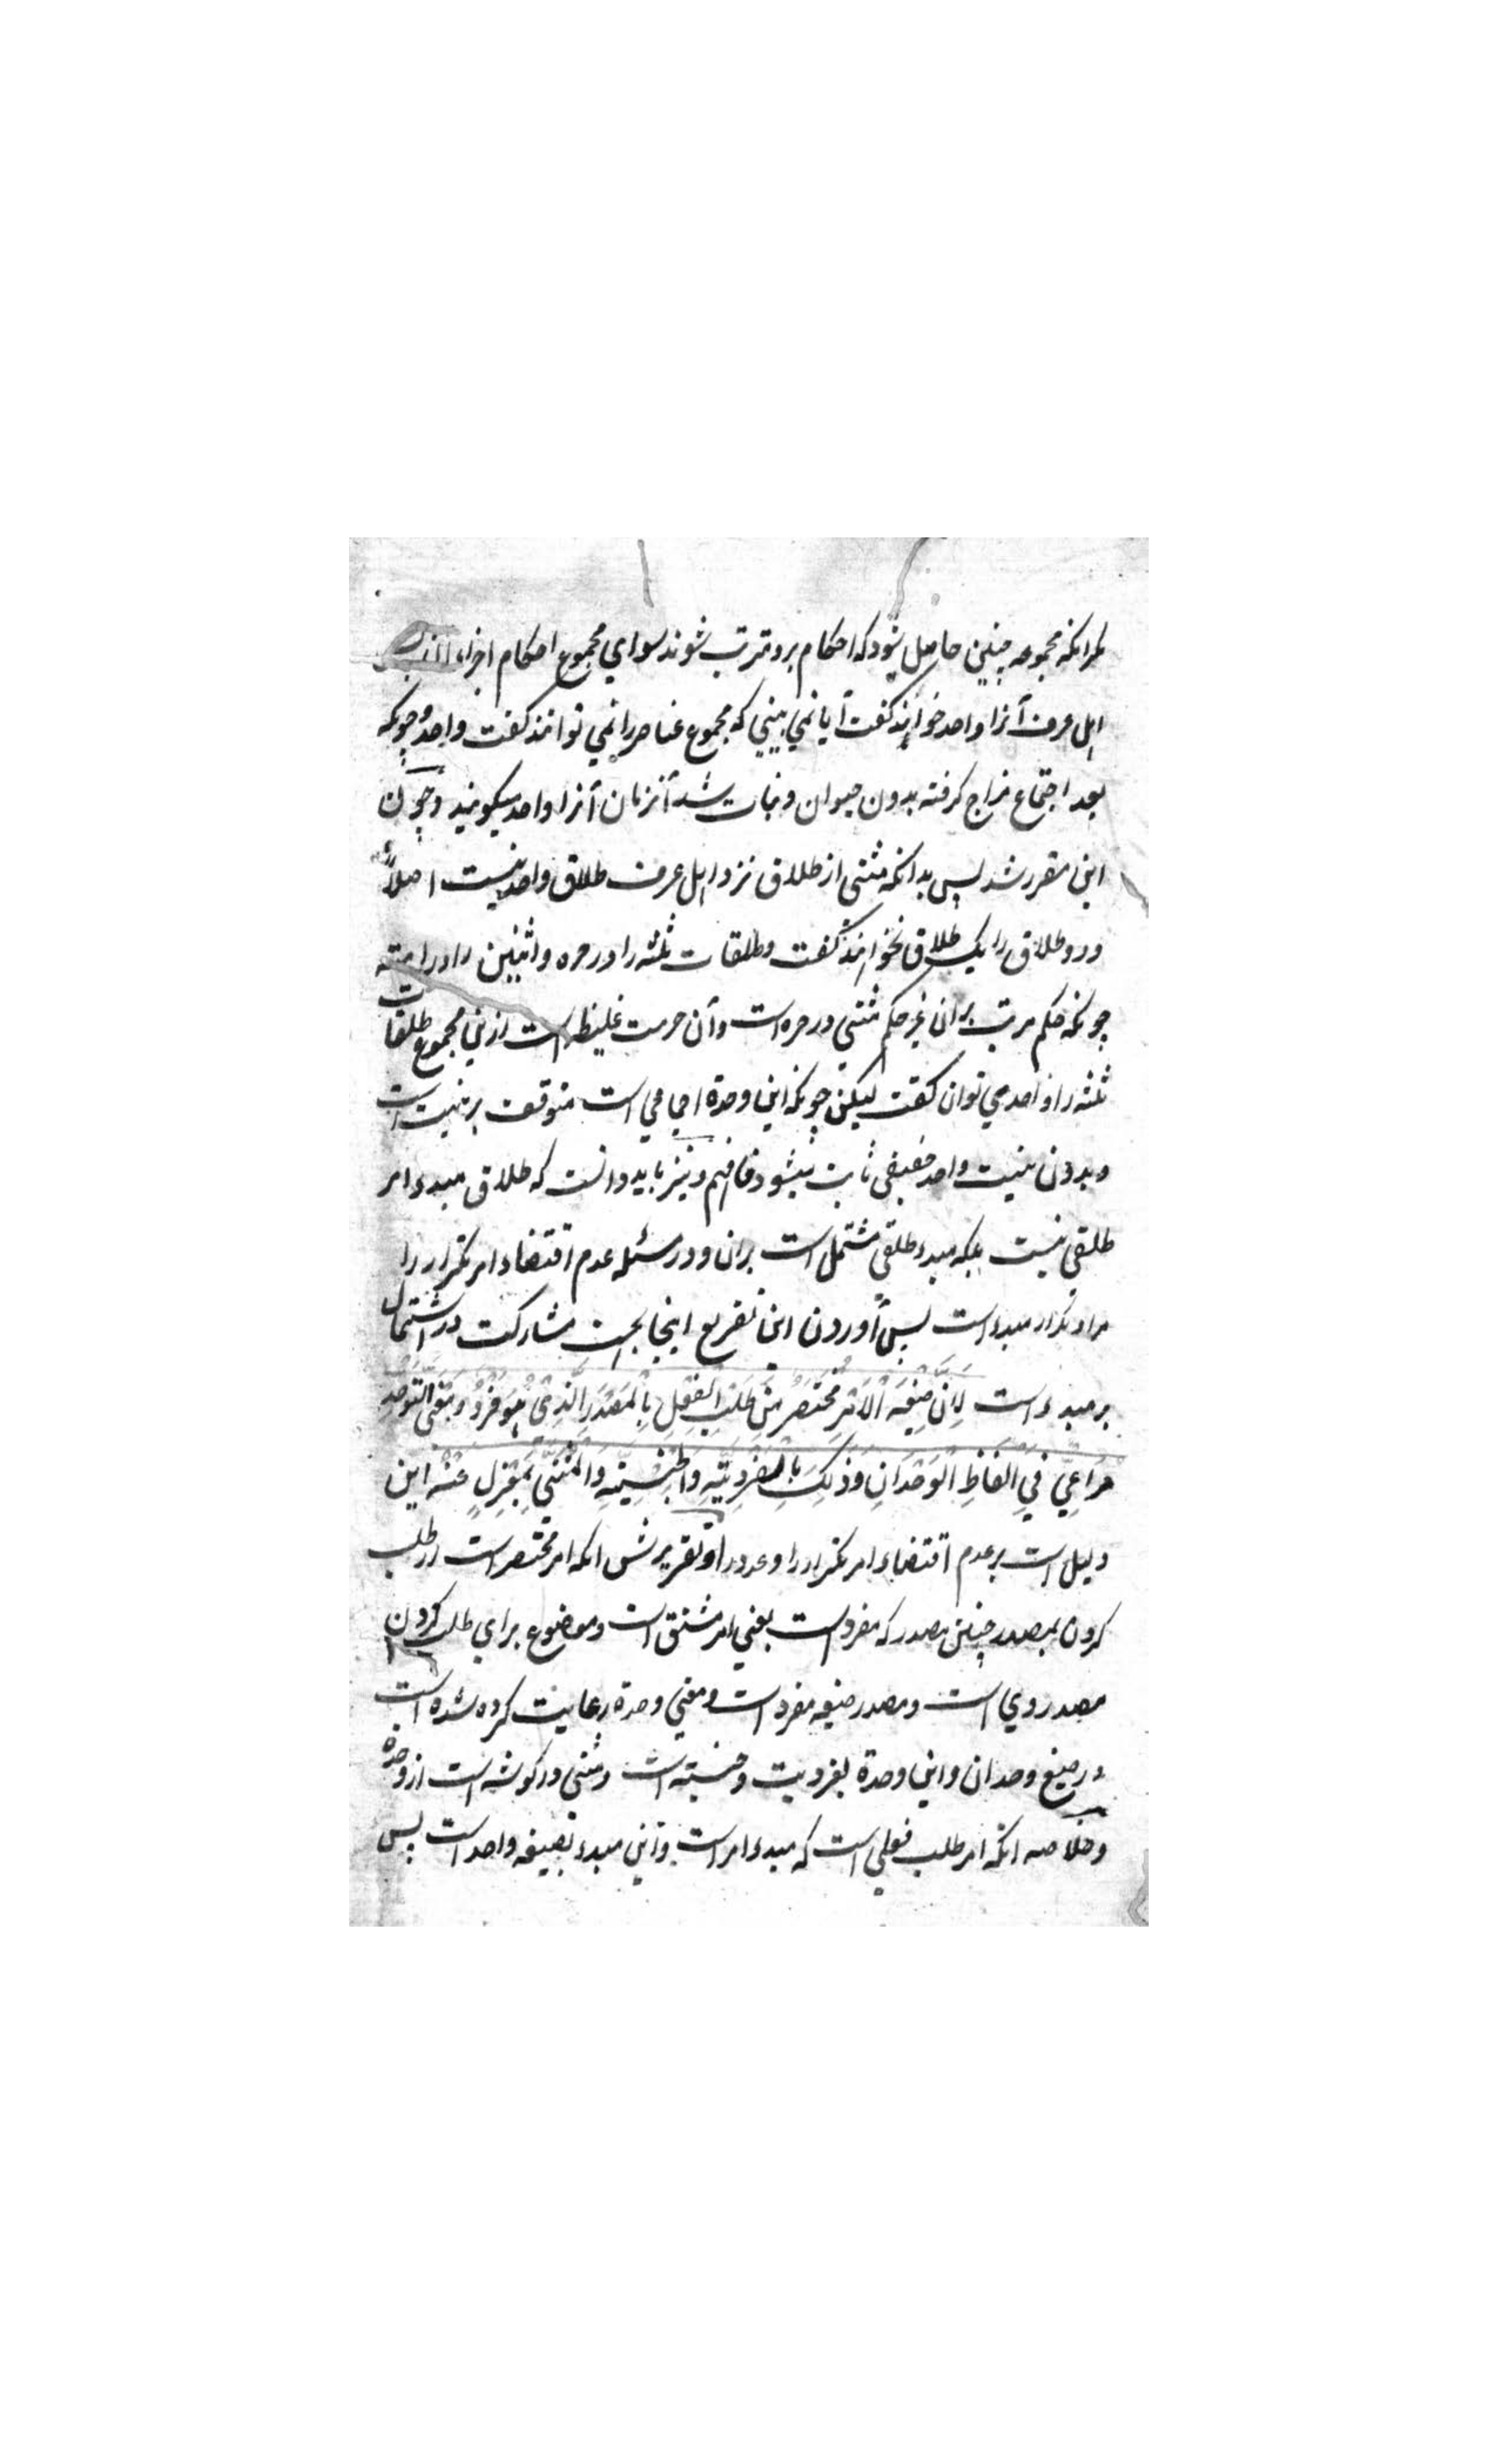 مگر انکه مجموعه چنین حاصل شود که احکام برو مترتب شوند سوای مجموع احکام اجزاء
اهل عرف آنرا واحد خوانند گفت آیا نمی بینی که مجموع عناصر را نمی توانند گفت واحد و چونکه
بعد اجتماع مزاج گرفته بدون حیوان و نبات شد آنزمان آنرا واحد میگویند و چون
این مقرر شد پس بدانکه مثنی از طلاق نزد اهل عرف طلاق واحد نیست اصلاً
و دو طلاق را یک طلاق نخوانند گفت و طلقات ثلثه را در حره و اثنین را در امته
چونکه حکم مرتب بران غیر حکم مثنی در حره است و آن حرمت غلیظه است ازینی مجموع طلقات
ثلثه را واحد می توان گفت لیکن چونکه این وحدة اجماعی است متوقف بر نیت است
و بدون نیت واحد حقیقی ثابت میشود فافهم و نیز باید دانست که طلاق مبدء امر
طلقی نیست بلکه مبدء طلقی مشتمل است بران و در مسئله عدم اقتضاء امر تکرار را
مراد تکرار مبدء است پس آوردن این تفریع اینجا بجهت مشارکت در اشتمال
بر مبدء است لِاَنَّ صِیْغَةَ الْاَمْرِ مُخْتَصَرَةٌ مِنْ طَلَبِ الْفِعْلِ بِالْمَصْدَرِ الَّذِیْ هُوَ فَرْدٌ وَمَعْنَی التَّوَحُّدِ
مُرَاعِیً فِی اَلْفَاظِ الْوَحْدَانِ وَذٰلِكَ بِالْفَرْدِیَّةِ وَالْجِنْسِیَّةِ وَالْمُثَنّٰی بِمَعْزِلٍ عَنْهُ این
دلیل است بر عدم اقتضاء امر تکرار را و عدد را و تقریرش انکه امر مختصر است از طلب
کردن بمصدر چنین مصدر که مفرد است یعنی امر مشتق است و موضوع برای طلب کردن
مصدر وی است و مصدر صیغه مفرد است و معنی وحدة رعایت کرده شده است
در صیغ وحدان و این وحدة بفردیت و جنسیته است و مثنی در گوشه است از وحدة
و خلاصه انکه امر طلب فعلی است که مبدء امر است و این مبدء بصیغه واحد است پس